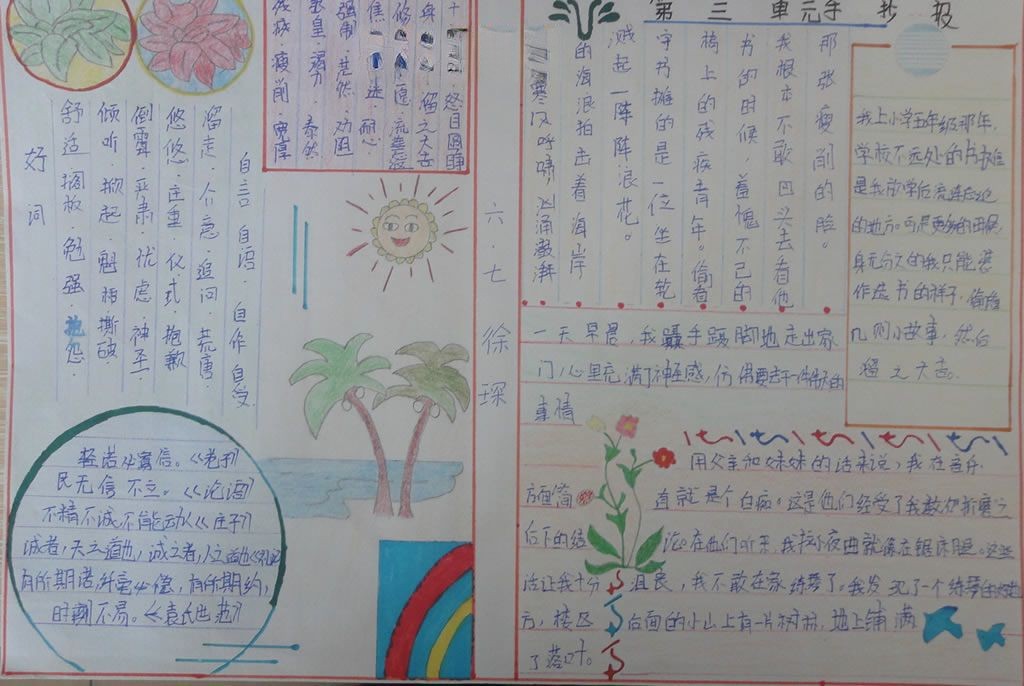 第三单元手抄报
那张瘦削的脸。
我根本不敢回头去看他
书的时候，羞愧不已的
椅上的残疾青年。偷看
守书摊的是一位坐在轮
溅起一阵阵浪花。
的海浪拍击着海岸
寒风呼啸，汹涌澎湃
我上小学五年级那年，
学校不远处的书摊
是我放学后流连忘返
的地方。可是更多的时候，
身无分文的我只能装
作选书的样子，偷看
几则小故事，然后
溜之大吉。
一天早晨，我蹑手蹑脚地走出家
门，心里充满了神秘感，仿佛要去干一件伟大的
事情
用父亲和妹妹的话来说，我在音乐
方面简直就是个白痴。这是他们经受了我数次折磨之
后下的结论。在他们听来，我拉小夜曲就像在锯床腿。这些
话让我十分沮丧，我不敢在家练琴了。我发现了一个练琴的好地
方，楼区后面的小山上有一片树林，地上铺满
了落叶。
六·七
徐琛
怒目圆睁
溜之大吉
流连忘返
耐心
强制·茫然·劝阻
教皇·竭力·泰然
残疾·瘦削·宽厚
自言自语·自作自受
溜走·介意·追问·荒唐
悠悠·庄重·仪式·抱歉
倒霉·严肃·忧虑·神圣·
倾听·掀起·魁梧·撕破·
舒适·搁板·勉强·抱怨·
好词
轻诺必寡信。《老子》
民无信不立。《论语》
不精不诚，不能动人《庄子》
诚者，天之道也，诚之者，人之道也
有所期诺，纤毫必偿，有所期约，
时刻不易。《袁氏世范》